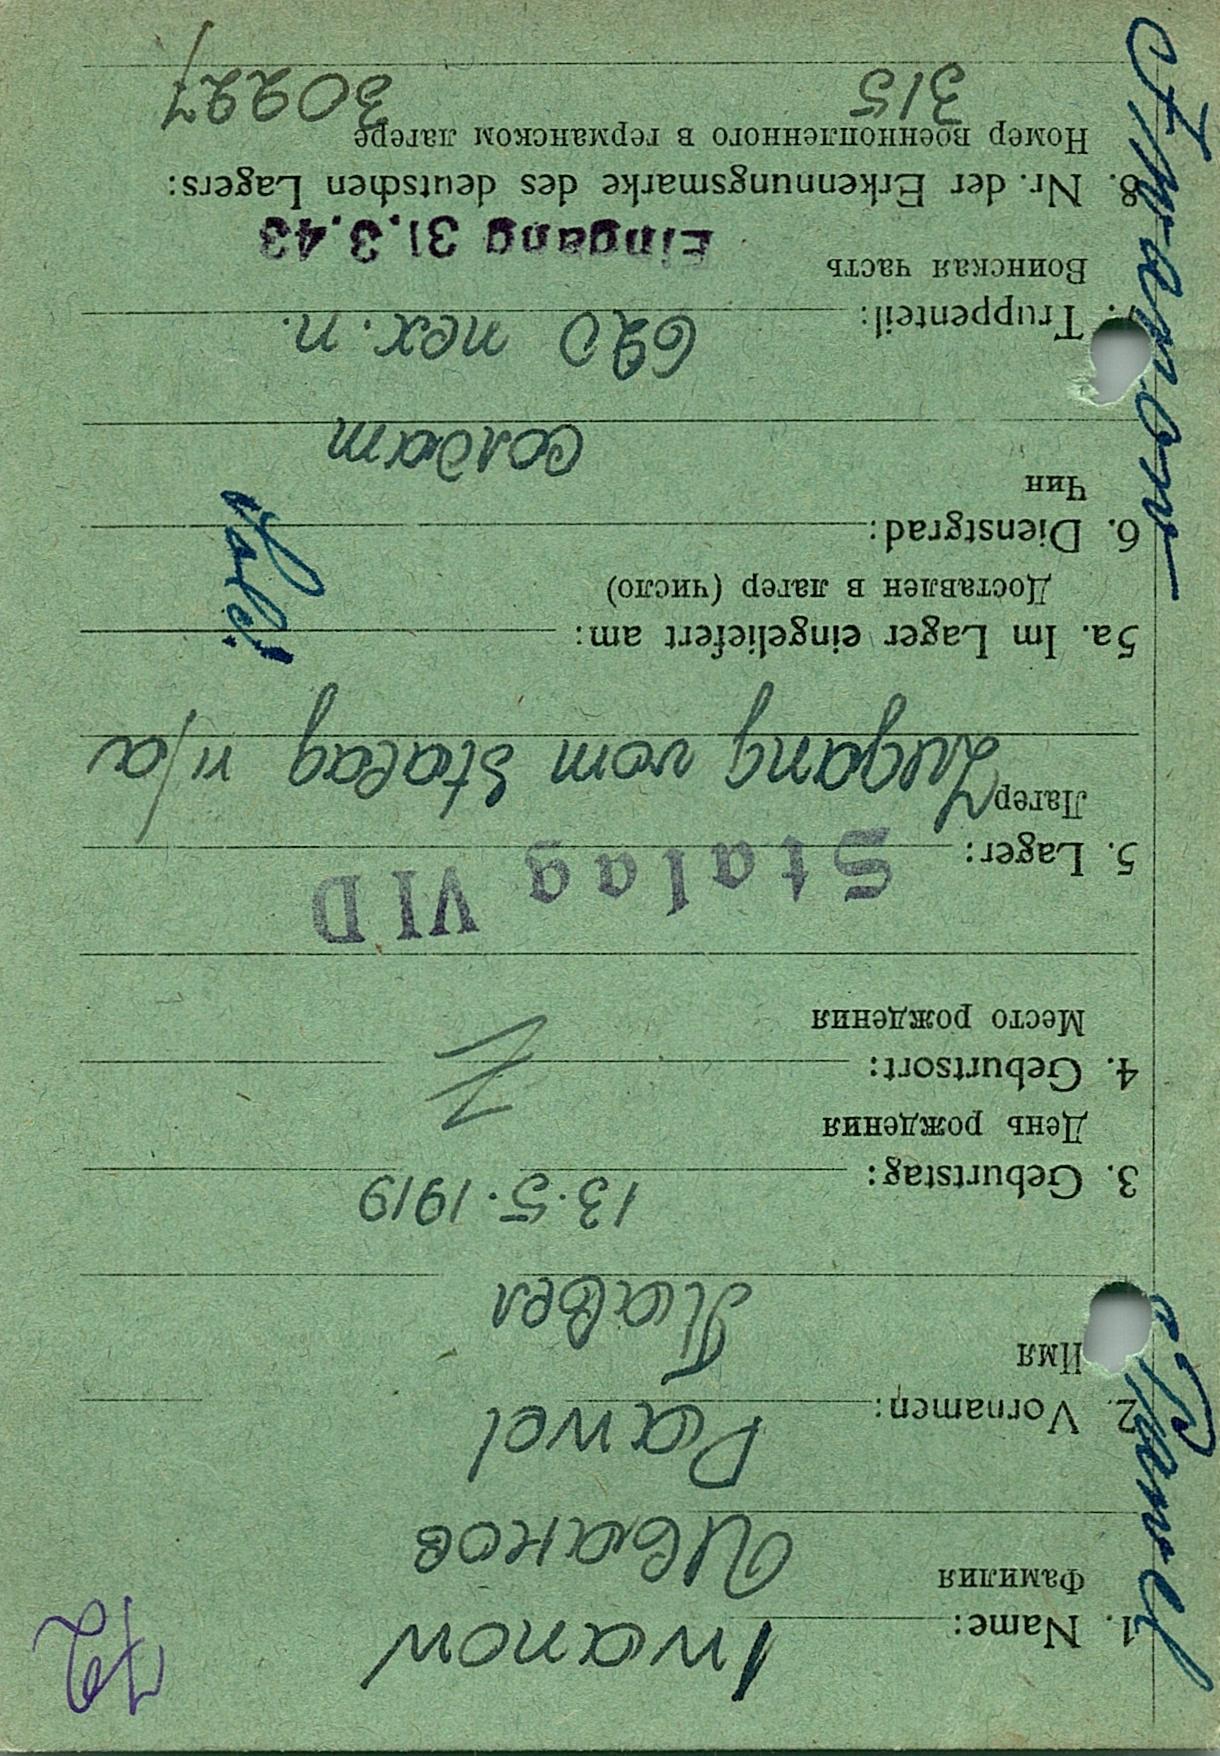 72
1. Name: Iwanow
Фамилия Иванов
2. Vornamen: Pawel
Имя Павел
3. Geburtstag: 13.5.1919
День рождения
4. Geburtsort:
Место рождения
Stalag VI D
5. Lager:
Лагер Zugang vom Stalag VI/a
5a. Im Lager eingeliefert am:
Доставлен в лагер (число)
6. Dienstgrad: Sold.
Чин солдат
7. Truppenteil: 620 пех. п.
Воинская часть
Eingang 31.3.43
8. Nr. der Erkennungsmarke des deutschen Lagers:
Номер военнопленного в германском лагере
315 30227
Iwanow
Pawel